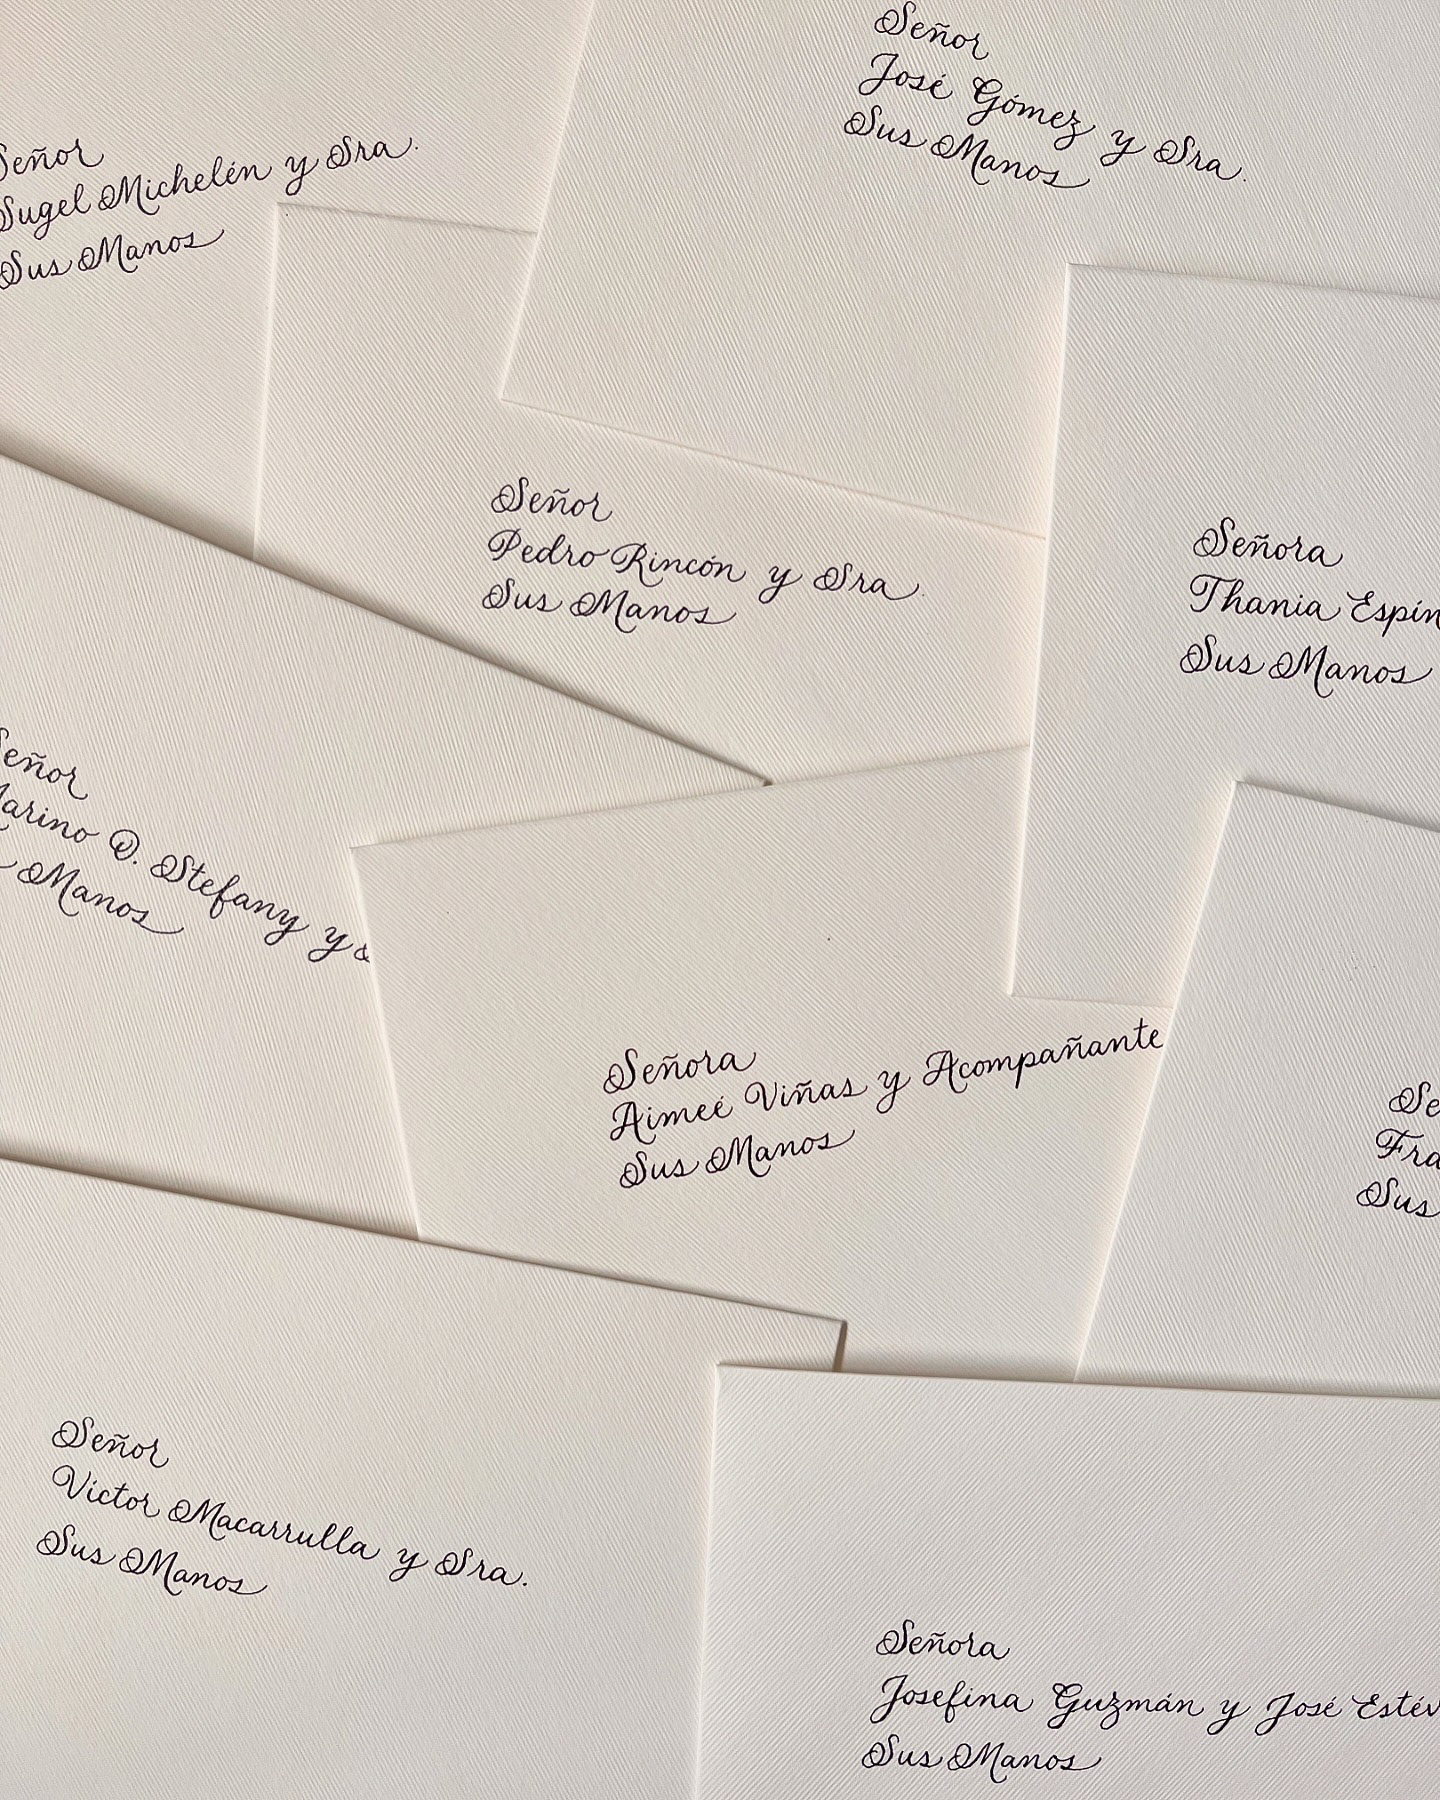 Señor
José Gómez y Sra.
Sus Manos
Señor
Sugel Michelén y Sra.
Sus Manos
Señor
Pedro Rincón y Sra.
Sus Manos
Señora
Thania Espín
Sus Manos
Señor
Marino O. Stefany y
Manos
Señora
Aimeé Viñas y Acompañante
Sus Manos
Se
Fra
Sus
Señor
Victor Macarrulla y Sra.
Sus Manos
Señora
Josefina Guzmán y José Estév
Sus Manos